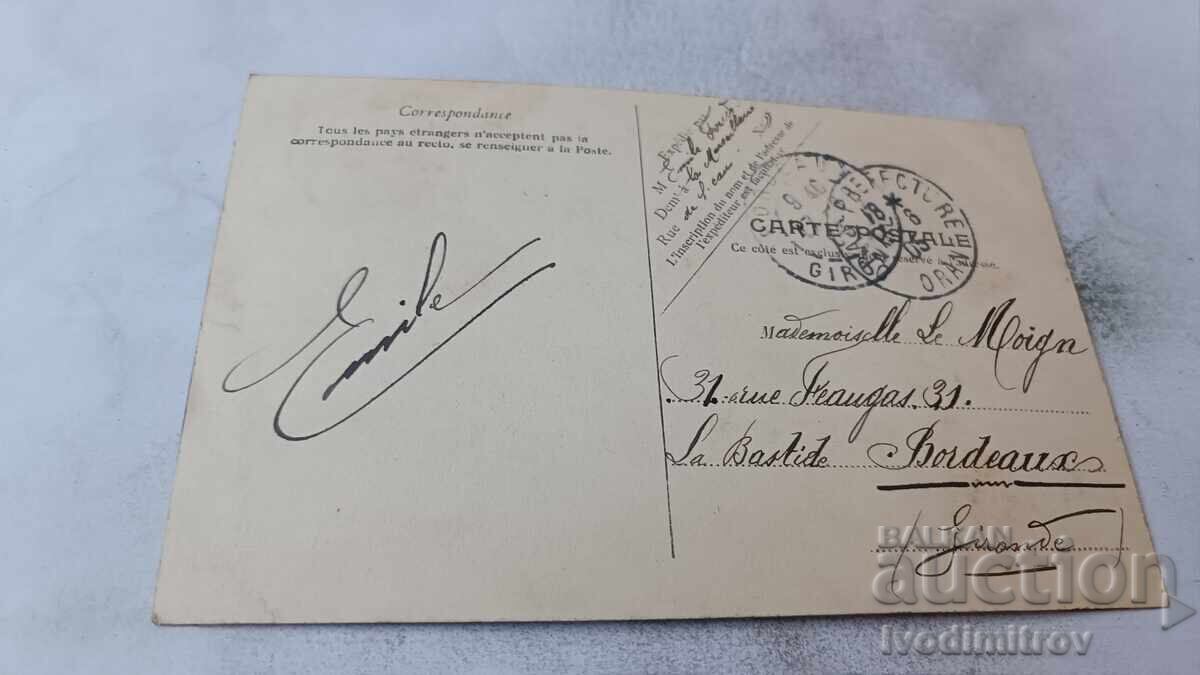 Correspondance
Tous les pays etrangers n'acceptent pas la
correspondance au recto, se renseigner a la Poste.
Emile
M
Demt à la Marseillaise
Rue de
L'inscription du nom et de l'adresse de
l'expéditeur est facultative
9
GIRONDE
PREFECTURE
18
ORAN
CARTE POSTALE
Ce côté est exclusivement réservé à l'adresse.
Mademoiselle Le Moign
31 rue Feaugas. 31.
La Bastide Bordeaux
(Gironde)
BALKAN
auction
Ivodimitrov